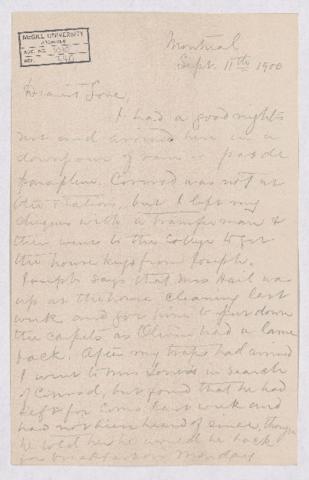 McGILL UNIVERSITY
ARCHIVES
ACC. NO.
REF.
Montreal
Sept. 11th 1900
Dearest Love,
I had a good nights
rest and arrived here in a
downpour of rain
Conrad was not at
the station, but I left my
cheques with a transferman &
then went to the College to get
the house keys from Joseph.
Joseph says that Mrs Hail was
up at the house cleaning last
week and got him to put down
the carpets as Oliver had a lame
back. After my traps had arrived
I went to Mrs in search
of Conrad, but found that he had
left for last week and
had not been heard of since, though
he told her he would be back
for breakfast on Monday